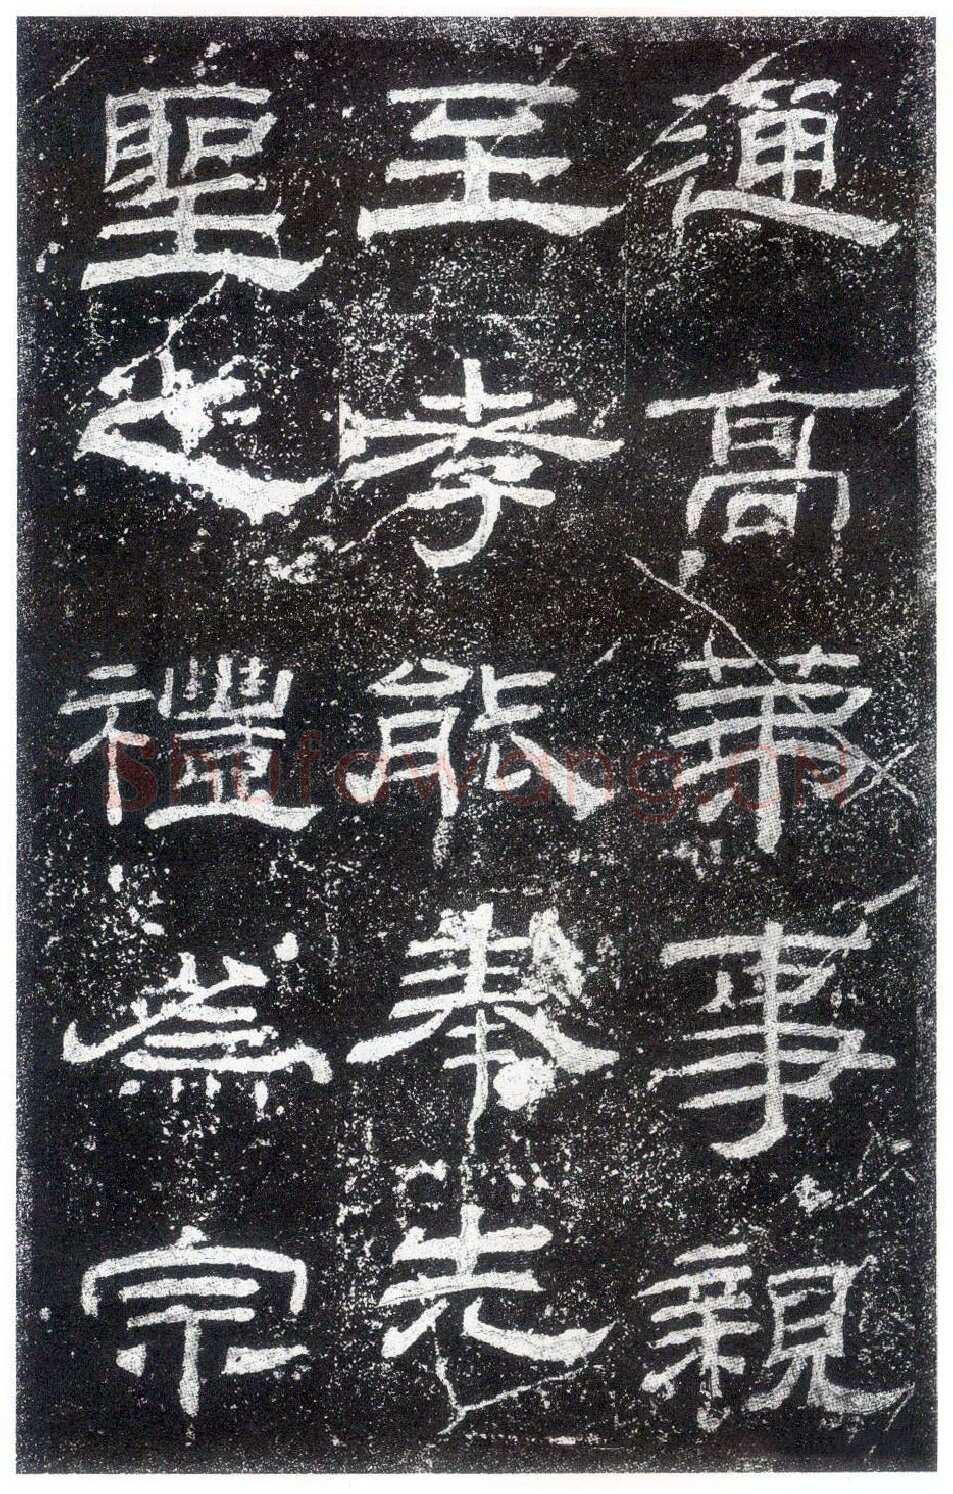 通高第事親
至孝能奉先
聖之禮為宗
Shufawang.cn